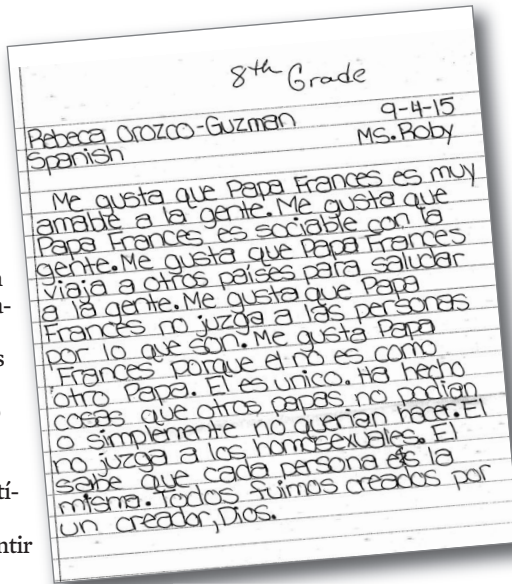 8th Grade
Rebeca Orozco-Guzman 9-4-15
Spanish Ms. Roby
Me gusta que Papa Frances es muy
amable a la gente. Me gusta que
Papa Frances es sociable con la
gente. Me gusta que Papa Frances
viaja a otros países para saludar
a la gente. Me gusta que Papa
Frances no juzga a las personas
por lo que son. Me gusta Papa
Frances porque el no es como
otro Papa. El es unico. Ha hecho
cosas que otros papas no podian
o simplemente no querian hacer. El
no juzga a los homosexuales. El
sabe que cada persona es la
misma. Todos fuimos creados por
un creador, Dios.
s
tí-
ntir